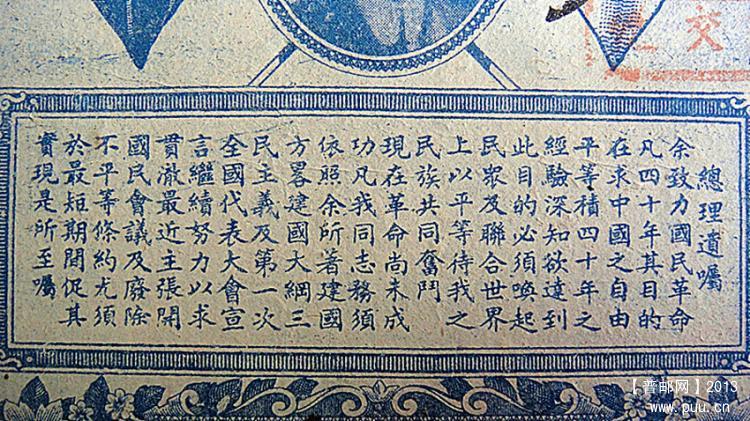 交
總理遺囑
余致力國民革命
凡四十年其目的
在求中國之自由
平等積四十年之
經驗深知欲達到
此目的必須喚起
民眾及聯合世界
上以平等待我之
民族共同奮鬥
現在革命尚未成
功凡我同志務須
依照余所著建國
方畧建國大綱三
民主義及第一次
全國代表大會宣
言繼續努力以求
貫澈最近主張開
國民會議及廢除
不平等條約尤須
於最短期間促其
實現是所至囑
【普邮网】2013
www.puu.cn